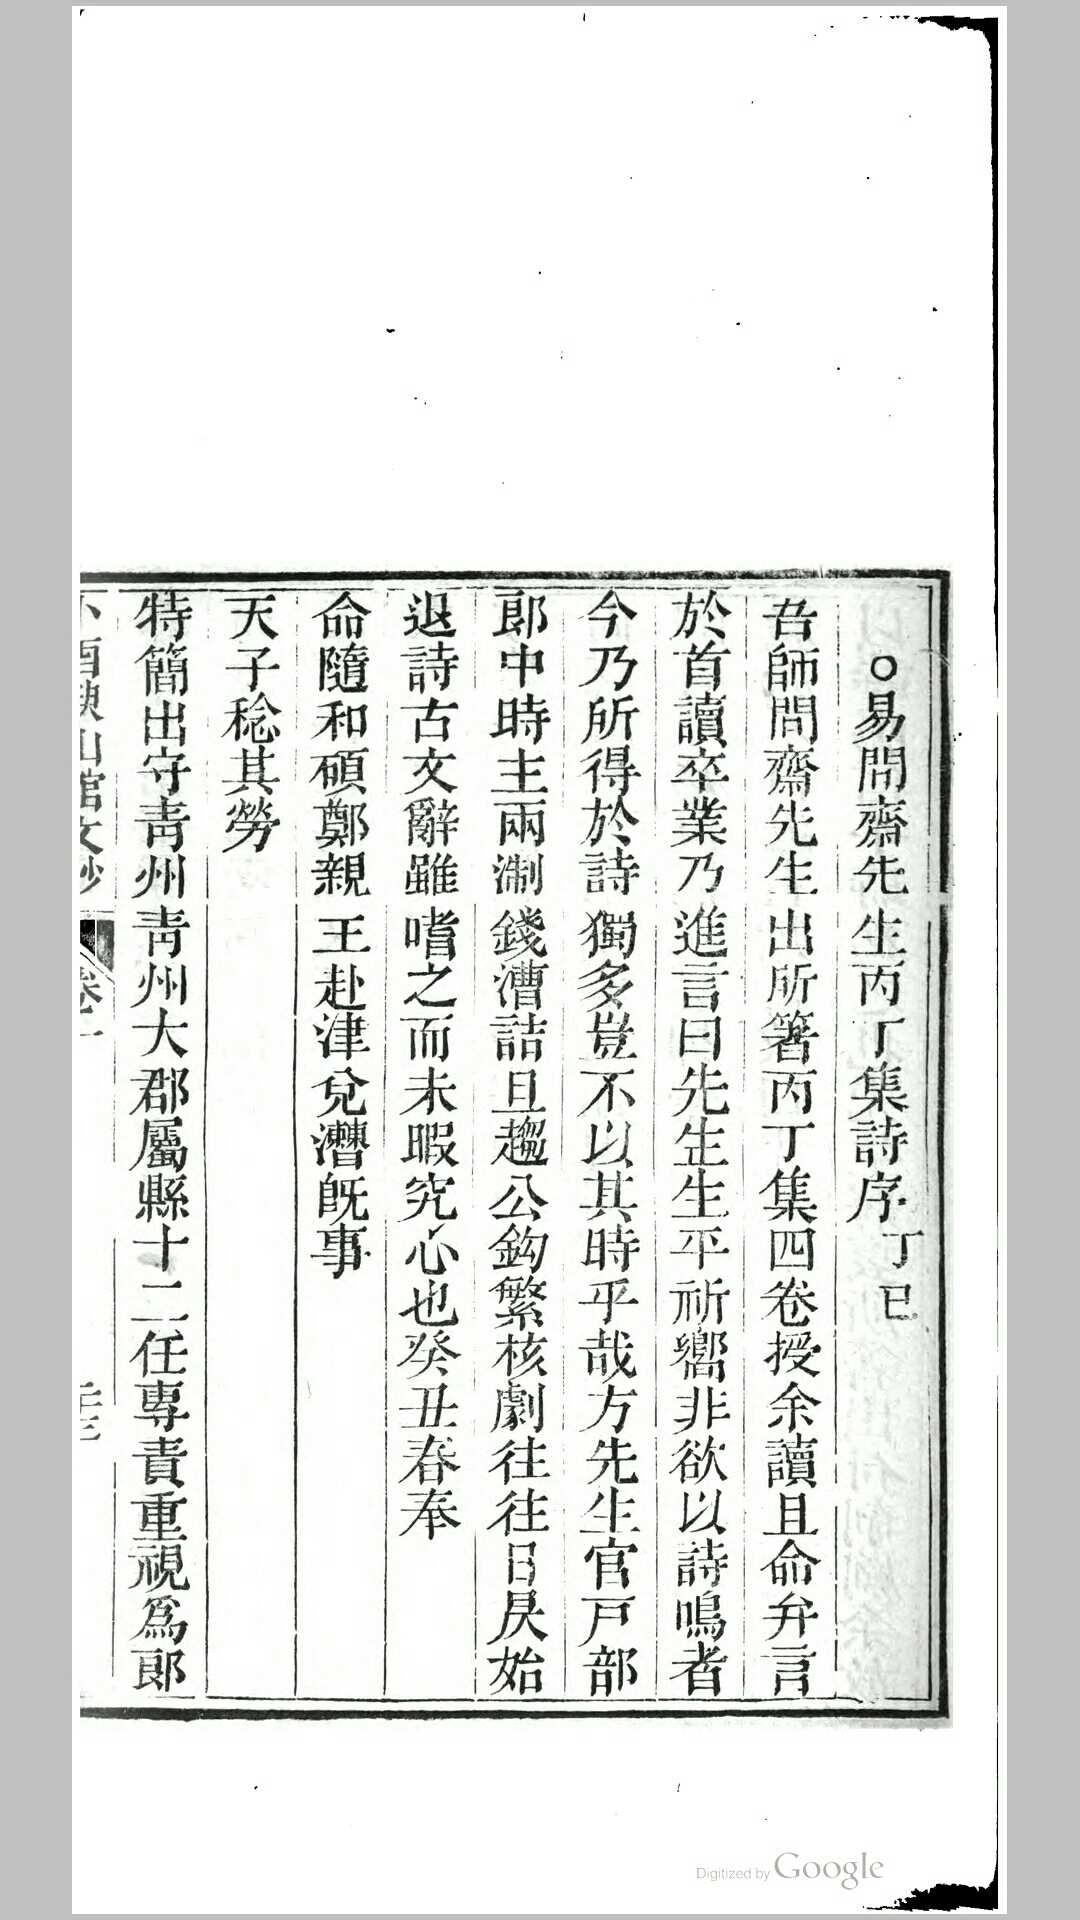 ○易問齋先生丙丁集詩序丁巳
吾師問齋先生出所箸丙丁集四卷授余讀且命弁言
於首讀卒業乃進言曰先生生平祈嚮非欲以詩鳴者
今乃所得於詩獨多豈不以其時乎哉方先生官戸部
郎中時主兩淛錢漕詰旦趨公鈎繁核劇往往日昃始
退詩古文辭雖嗜之而未暇究心也癸丑春奉
命隨和碩鄭親王赴津兌漕旣事
天子稔其勞
特簡出守靑州靑州大郡屬縣十二任專責重視爲郎
小酉腴山館文鈔 卷一
Digitized by Google